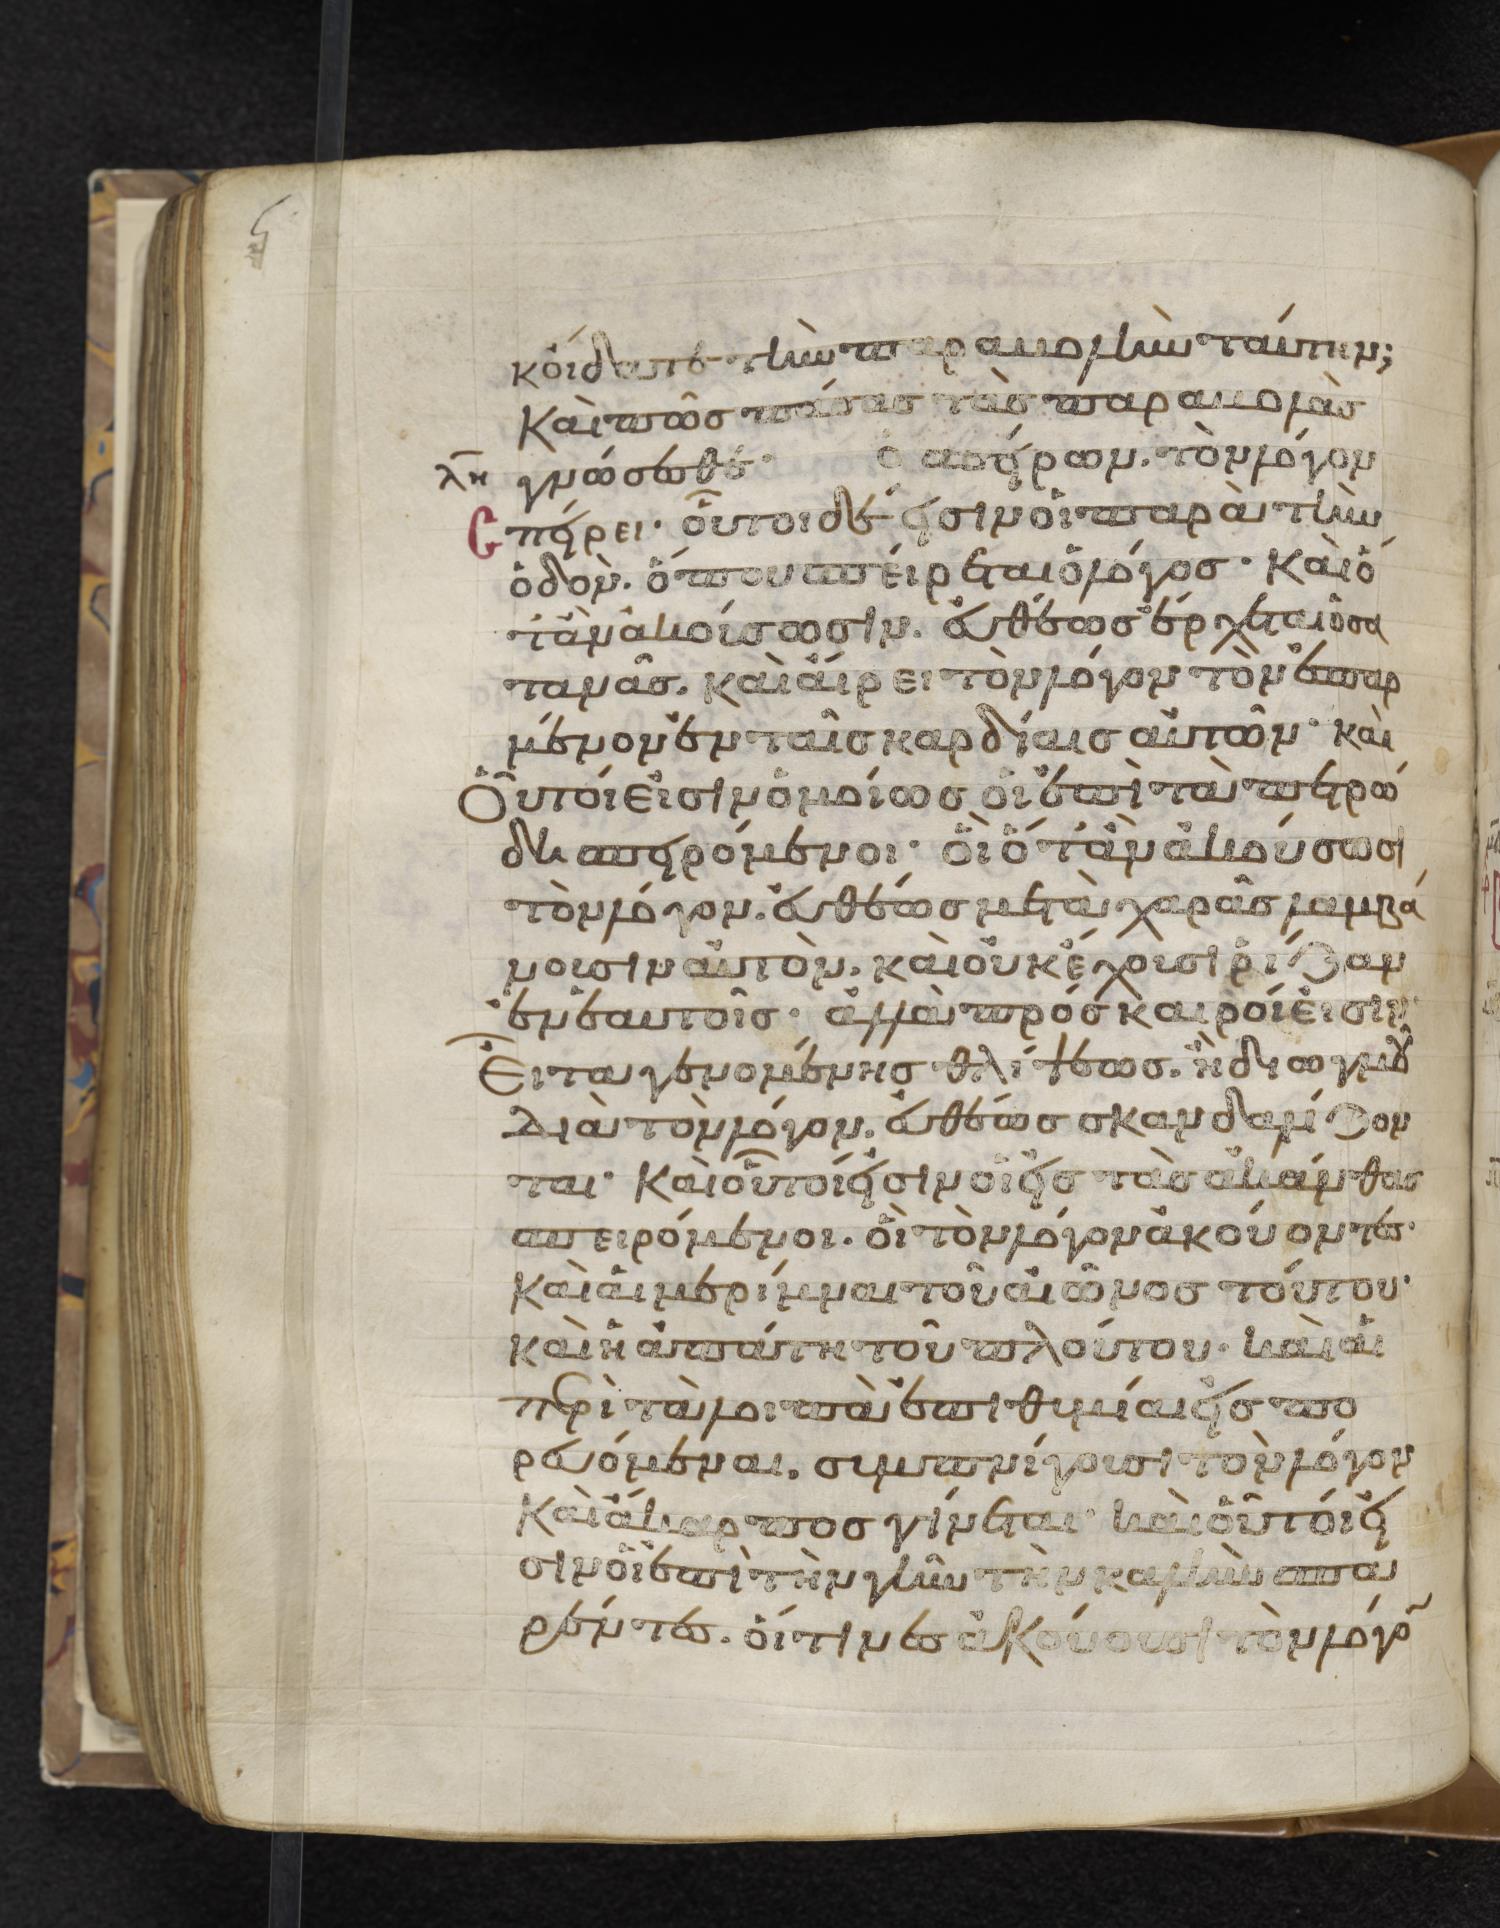 κ οἴδατε τὴν παραβολὴν ταύτην;
Καὶ πῶς πάσας τὰς παραβολὰς
λη γνώσεσθε· ὁ σπείρων. τὸν λόγον
Σπείρει· οὗτοι δέ εἰσιν οἱ παρὰ τὴν
ὁδὸν. ὅπου σπείρεται ὁ λόγος· Καὶ ὅ
τὰν ἀκούσωσιν. εὐθέως ἔρχεται ὁ σα
τανᾶς. καὶ αἴρει τὸν λόγον τὸν ἐσπαρ
μένον ἐν ταῖς καρδίαις αὐτῶν· καὶ
Οὗτοί εἰσιν ὁμοίως οἱ ἐπὶ τὰ πετρώ
δη σπειρόμενοι· οἳ ὅταν ἀκούσωσι
τὸν λόγον. εὐθέως μετὰ χαρᾶς λαμβά
νουσιν αὐτὸν. καὶ οὐκ ἔχουσι ῥίζαν
ἐν ἑαυτοῖς· ἀλλὰ πρόσκαιροί εἰσιν·
Εἶτα γενομένης θλίψεως. ἢ διωγμοῦ
Διὰ τὸν λόγον. εὐθέως σκανδαλίζον
ται· Καὶ οὗτοί εἰσιν οἱ εἰς τὰς ἀκάνθας
σπειρόμενοι. οἱ τὸν λόγον ἀκούοντες·
Καὶ αἱ μέριμναι τοῦ αἰῶνος τούτου·
καὶ ἡ ἀπάτη τοῦ πλούτου· καὶ αἱ
περὶ τὰ λοιπὰ ἐπιθυμίαι εἰσπο
ρευόμεναι. συμπνίγουσι τὸν λόγον
Καὶ ἄκαρπος γίνεται· καὶ οὗτοί εἰ
σιν οἱ ἐπὶ τὴν γῆν τὴν καλὴν σπα
ρέντες. οἵτινες ἀκούουσι τὸν λόγο̃